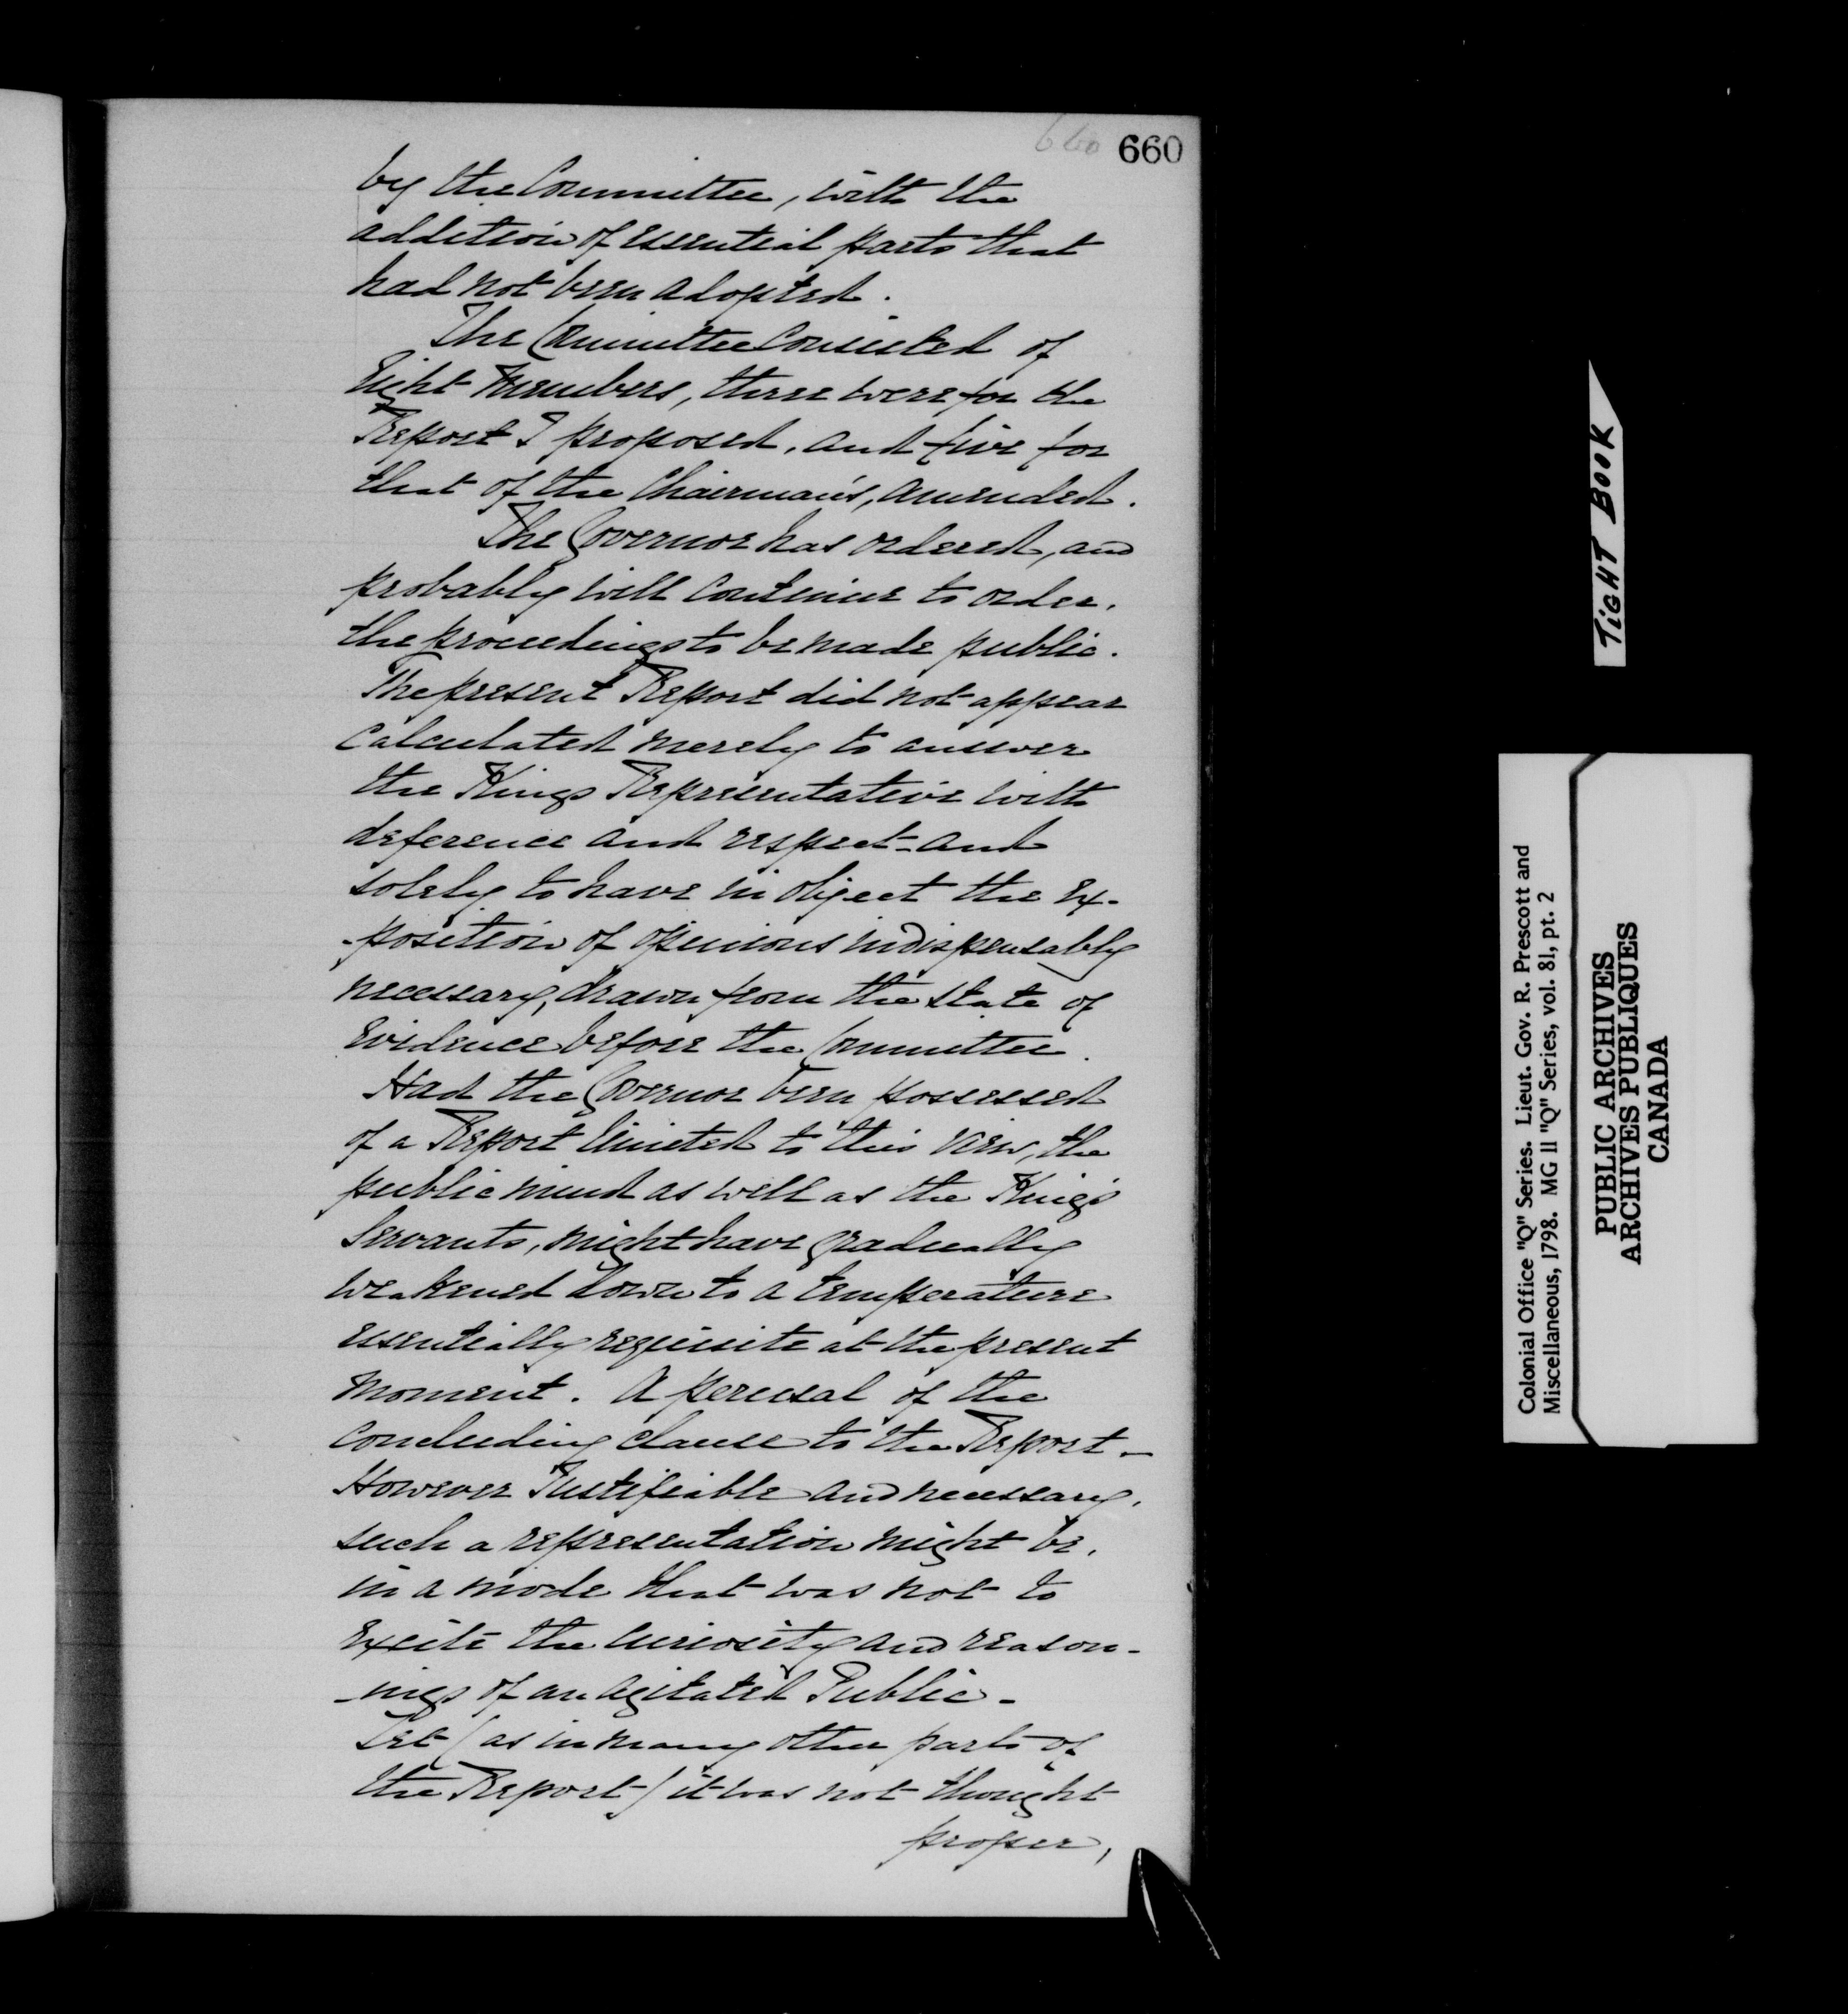 660 660
by the Committee, with the
addition of essential parts that
had not been adopted.
The Committee Consisted of
Eight Members, three were for the
Report I proposed, and five for
that of the Chairman's, amended.
The Governor has ordered, and
probably will continue to order,
the proceedings to be made public.
The present Report did not appear
Calculated merely to answer
the Kings Representative with
deference and respect - and
solely to have in object the Ex-
-position of opinions indispensably
necessary, drawn from the state of
Evidence before the Committee.
Had the Governor been possessed
of a Report limited to this view, the
public mind as well as the King's
Servants, might have gradually
weakened down to a temperature
essentially requisite at the present
moment. A perusal of the
Concluding clause to the Report -
However Justifiable and necessary,
such a representation might be,
in a mode that was not to
Excite the Curiosity and reason-
-ings of an agitated Public -
Yet (as in many other parts of
the Report) it was not thought
proper,
TiGHT BOOK
Colonial Office "Q" Series. Lieut. Gov. R. Prescott and
Miscellaneous, 1798. MG 11 "Q" Series, vol. 81, pt. 2
PUBLIC ARCHIVES
ARCHIVES PUBLIQUES
CANADA